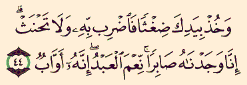 وَخُذْ بِيَدِكَ ضِغْثًا فَاضْرِب بِّهِ وَلَا تَحْنَثْ ۗ
إِنَّا وَجَدْنَاهُ صَابِرًا ۚ نِّعْمَ الْعَبْدُ ۖ إِنَّهُ أَوَّابٌ ٤٤